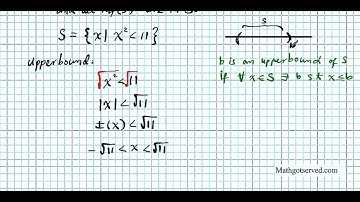 S = {x | x² < 11}
upperbound:
√x² < √11
|x| < √11
±(x) < √11
-√11 < x < √11
S
b is an upperbound of S
if ∀ x ∈ S ∃ b s.t x ≤ b
Mathgotserved.com